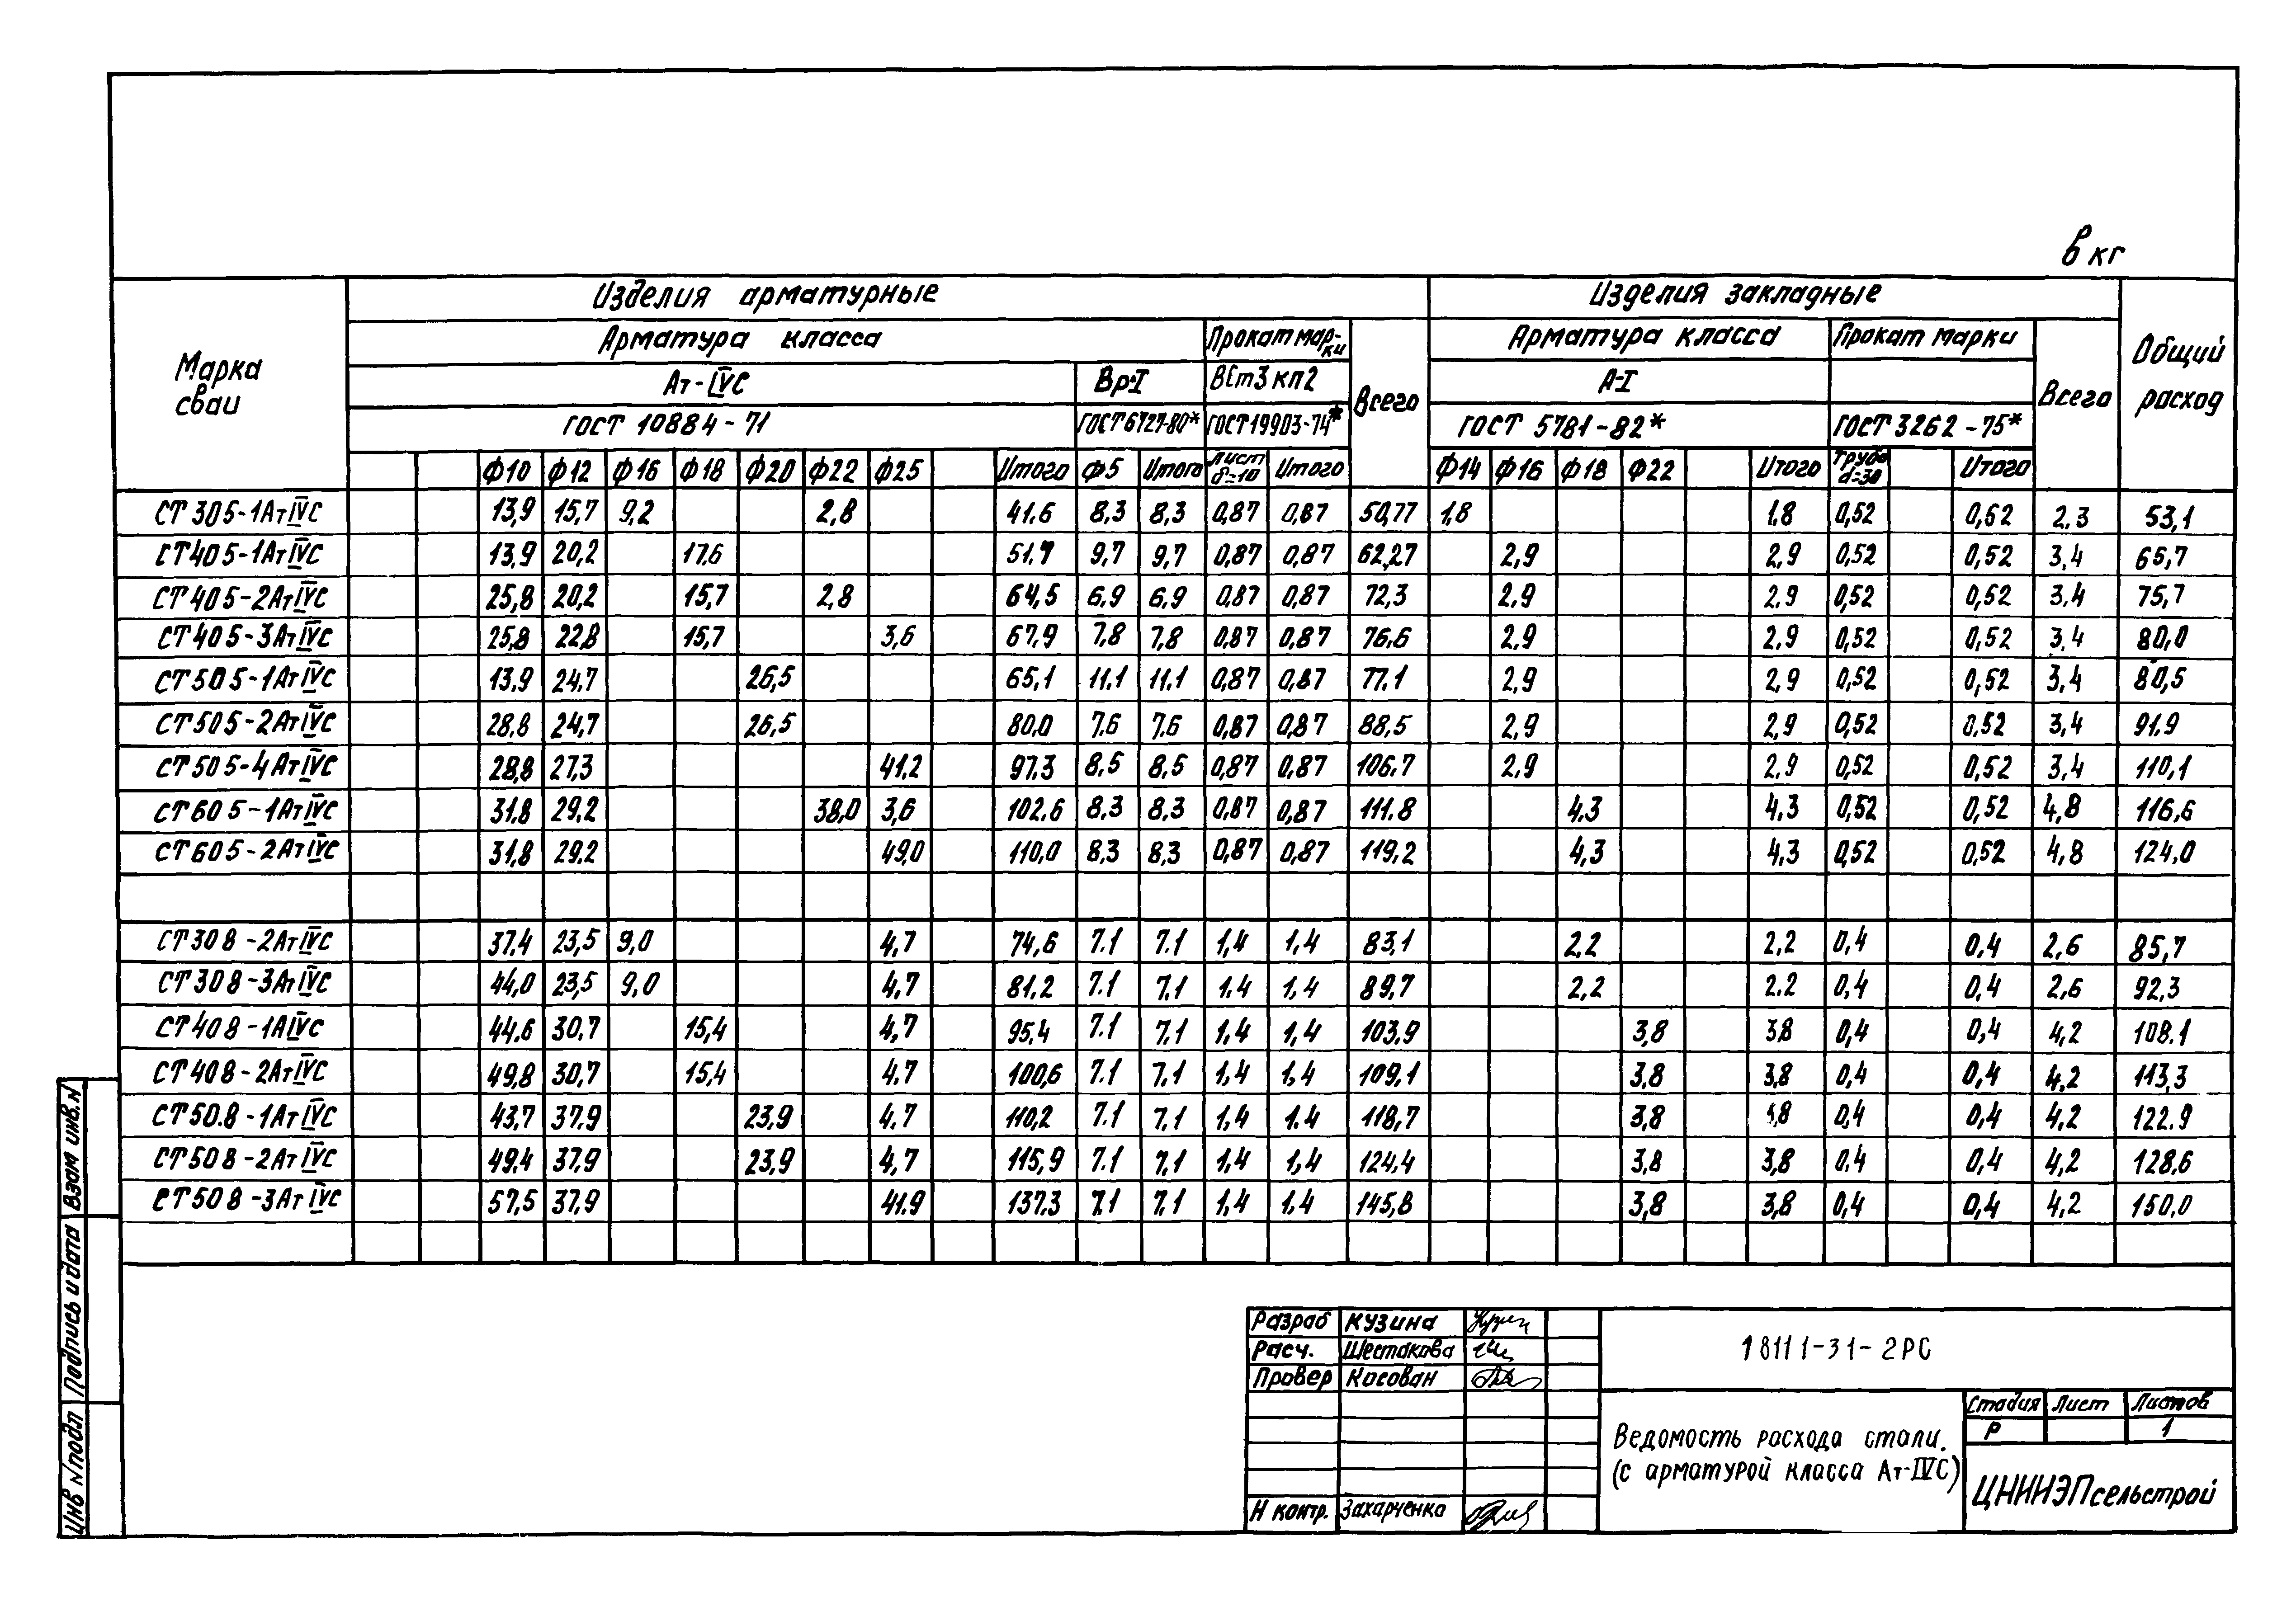 в кг
Марка сваи
Изделия арматурные
Изделия закладные
Общий расход
Арматура класса
Прокат марки
Всего
Арматура класса
Прокат марки
Всего
Ат-IVС
Вр-I
ВСт3кп2
А-I
ГОСТ 10884-71
ГОСТ 6727-80*
ГОСТ 19903-74*
ГОСТ 5781-82*
ГОСТ 3262-75*
Ф10 Ф12 Ф16 Ф18 Ф20 Ф22 Ф25 Итого Ф5 Итого Лист δ=10 Итого Ф14 Ф16 Ф18 Ф22 Итого Труба d=30 Итого
СТ305-1АтIVС 13,9 15,7 9,2 2,8 41.6 8.3 8.3 0,87 0,87 50,77 1,8 1,8 0,52 0,52 2.3 53,1
СТ405-1АтIVС 13,9 20,2 17,6 51.7 9,7 9,7 0,87 0,87 62,27 2,9 2,9 0,52 0,52 3.4 65,7
СТ405-2АтIVС 25,8 20,2 15,7 2,8 64,5 6,9 6,9 0,87 0,87 72,3 2,9 2,9 0,52 0,52 3,4 75,7
СТ405-3АтIVС 25,8 22,8 15,7 3,6 67,9 7,8 7,8 0,87 0,87 76,6 2,9 2,9 0,52 0,52 3,4 80,0
СТ505-1АтIVС 13,9 24,7 26,5 65,1 11.1 11.1 0,87 0,87 77.1 2,9 2,9 0,52 0,52 3,4 80,5
СТ505-2АтIVС 28,8 24,7 26,5 80,0 7,6 7,6 0,87 0,87 88,5 2,9 2,9 0,52 0,52 3,4 91,9
СТ505-4АтIVС 28,8 27,3 41,2 97,3 8,5 8,5 0,87 0,87 106.7 2,9 2,9 0,52 0,52 3,4 110,1
СТ605-1АтIVС 31,8 29,2 38,0 3,6 102.6 8,3 8.3 0,87 0,87 111.8 4,3 4,3 0,52 0,52 4,8 116,6
СТ605-2АтIVС 31,8 29,2 49,0 110,0 8,3 8,3 0,87 0,87 119,2 4,3 4,3 0,52 0,52 4,8 124,0
СТ308-2АтIVС 37,4 23,5 9,0 4,7 74,6 7.1 7.1 1,4 1,4 83,1 2,2 2,2 0,4 0,4 2,6 85,7
СТ308-3АтIVС 44,0 23,5 9,0 4,7 81,2 7.1 7.1 1.4 1,4 89,7 2,2 2.2 0,4 0,4 2,6 92,3
СТ408-1АIVС 44,6 30,7 15,4 4,7 95,4 7.1 7.1 1,4 1,4 103,9 3,8 3,8 0,4 0,4 4,2 108.1
СТ408-2АтIVС 49,8 30,7 15,4 4.7 100,6 7.1 7.1 1,4 1,4 109,1 3,8 3,8 0,4 0,4 4,2 113,3
СТ50.8-1АтIVС 43,7 37.9 23,9 4.7 110,2 7.1 7.1 1,4 1.4 118,7 3,8 3,8 0,4 0,4 4,2 122.9
СТ508-2АтIVС 49,4 37,9 23,9 4,7 115,9 7.1 7.1 1,4 1,4 124,4 3,8 3,8 0,4 0,4 4,2 128,6
СТ508-3АтIVС 57,5 37,9 41.9 137.3 7.1 7.1 1,4 1.4 145,8 3,8 3,8 0,4 0,4 4,2 150,0
Взам инв.№
Подпись и дата
Инв № подл
Разраб Кузина
Расч. Шестакова
Провер Косован
Н контр. Захарченко
18111-31-2РС
Ведомость расхода стали.
(с арматурой класса Ат-IVС)
Стадия Лист Листов
Р 1
ЦНИИЭПсельстрой